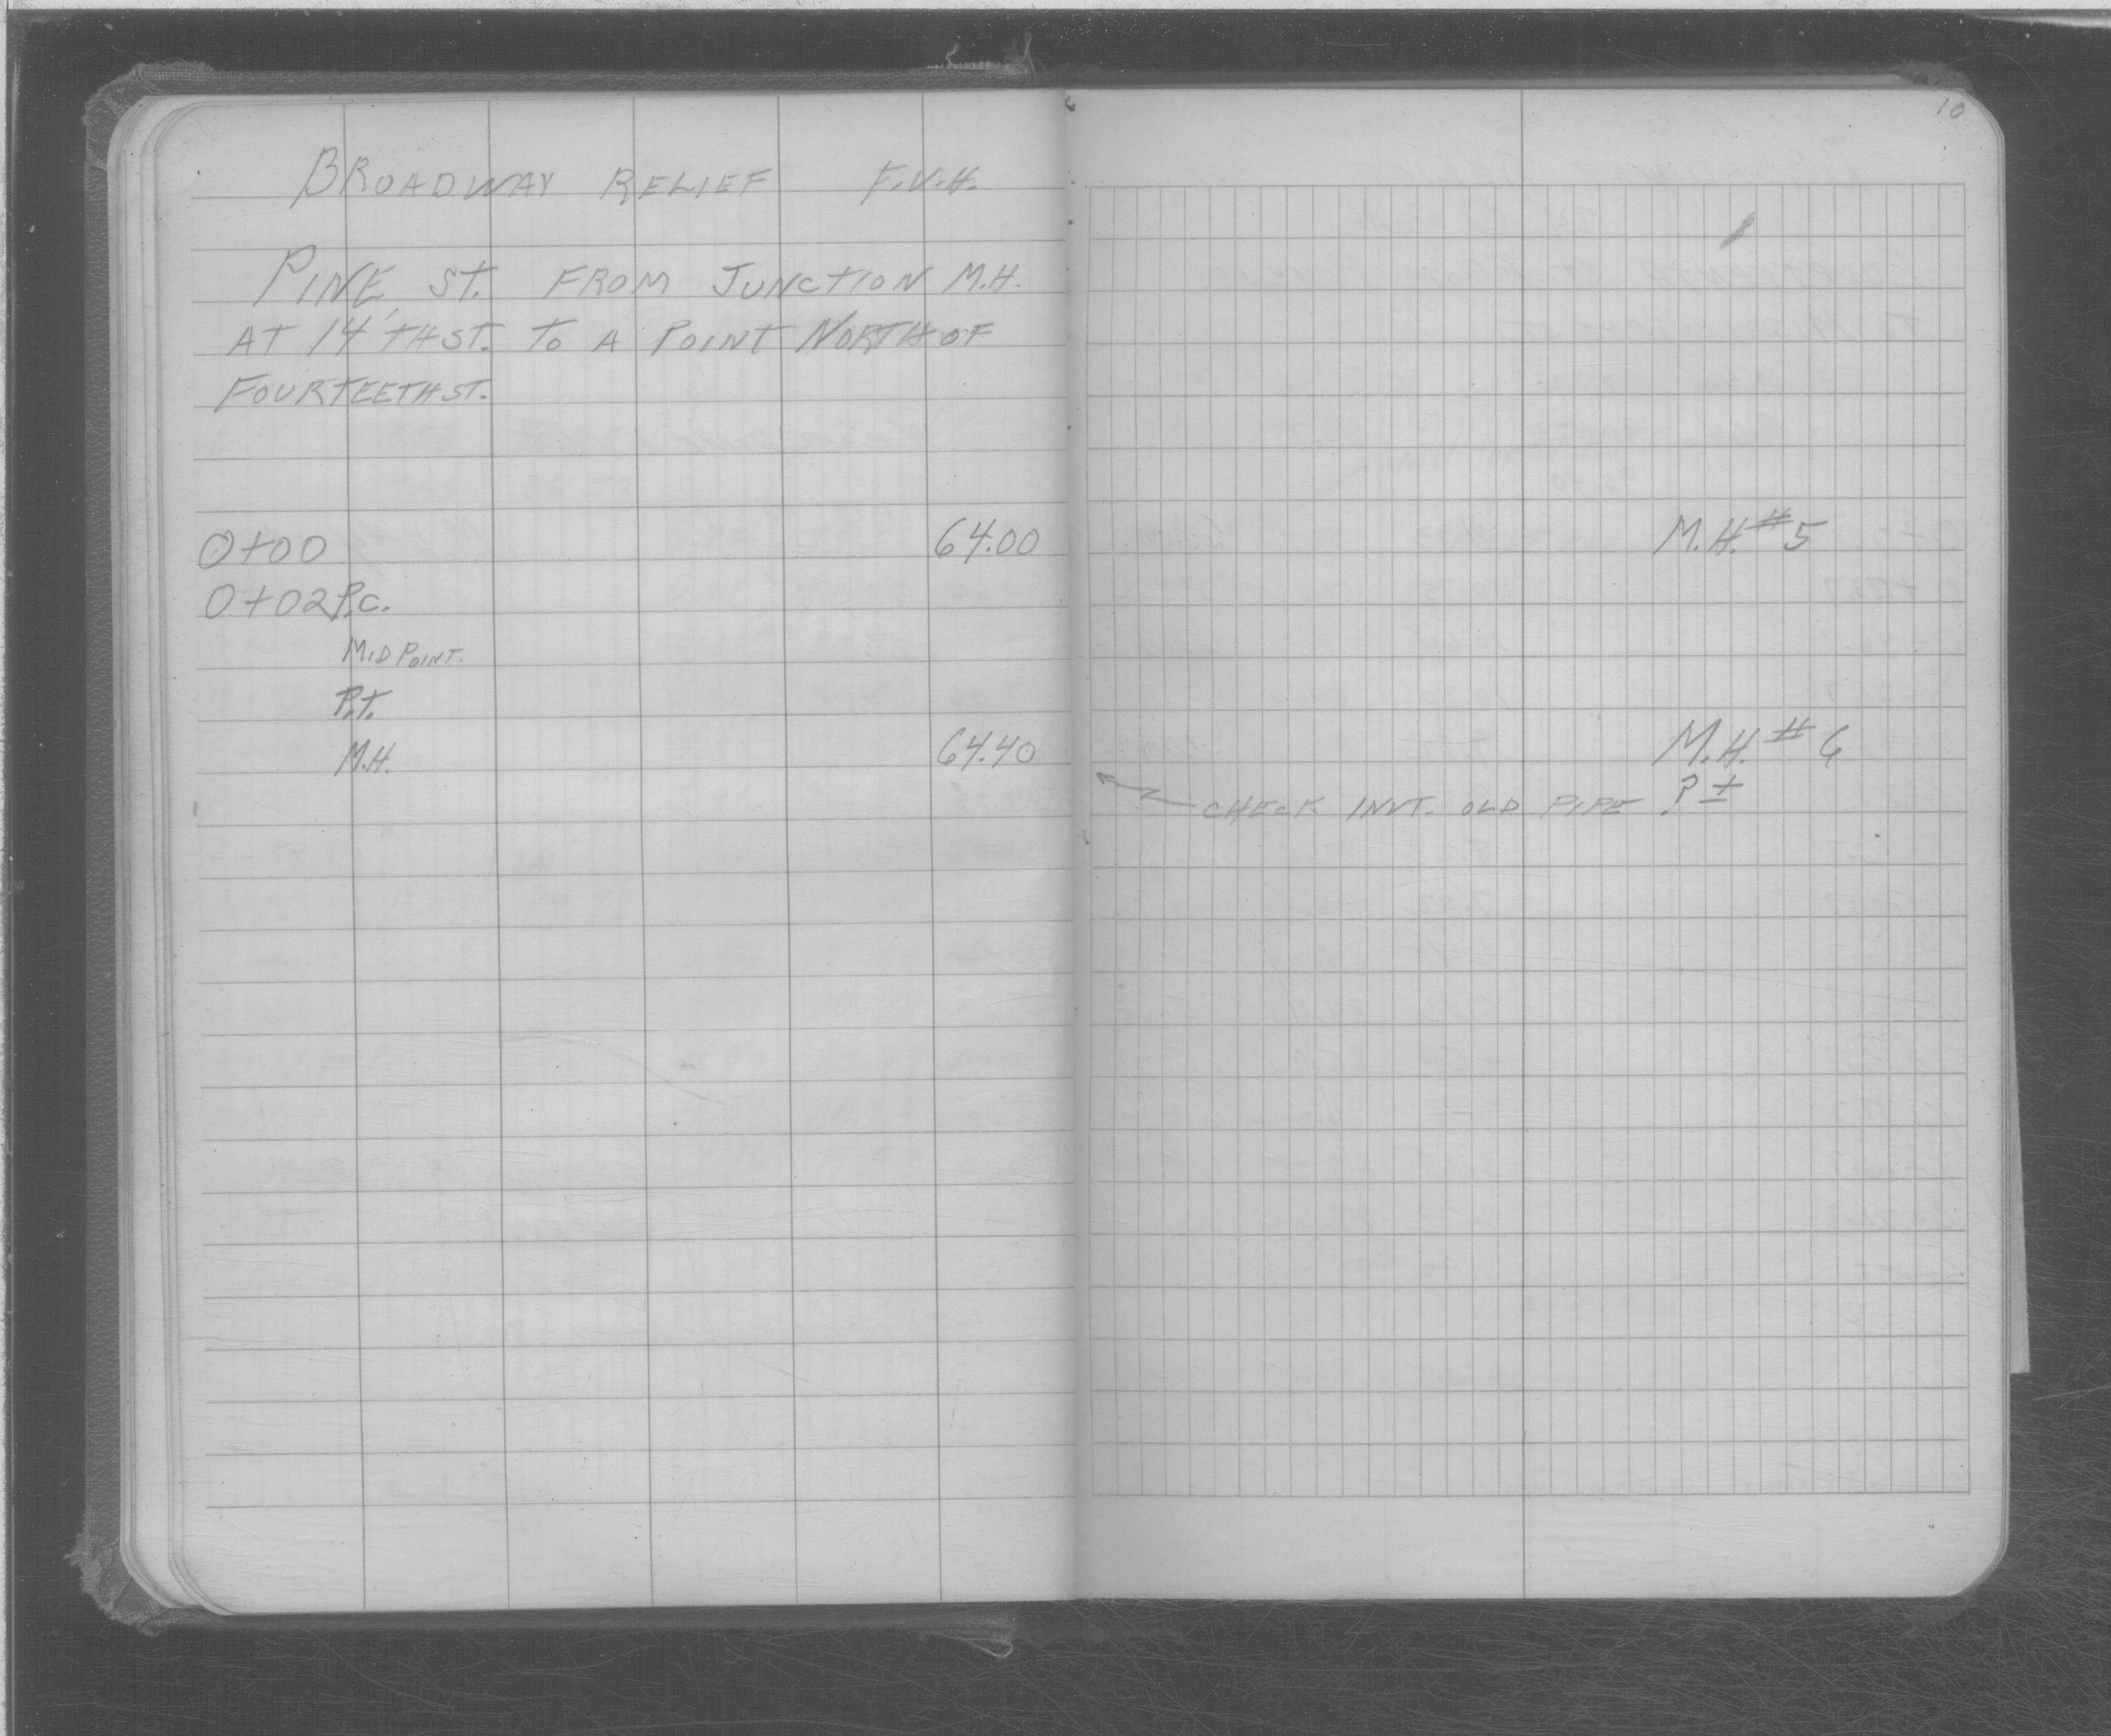 10
BROADWAY RELIEF F.V.H.
PINE ST. FROM JUNCTION M.H.
AT 14'TH ST. TO A POINT NORTH OF
FOURTEETH ST.
0+00 64.00 M.H. #5
0+02 P.C.
MID POINT.
P.T.
M.H. 64.40 M.H. #6
CHECK INVT. OLD PIPE ? ±